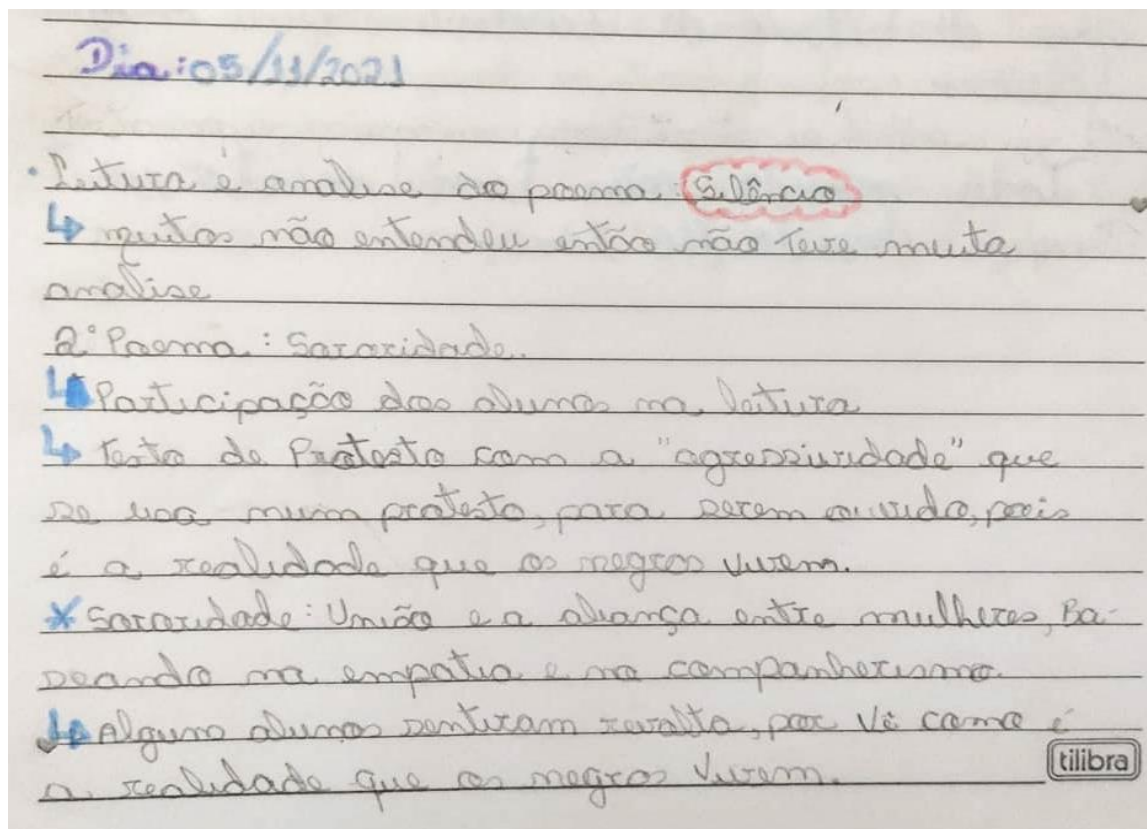 Dia: 05/11/2021
Leitura é analise do poema: Silêncio
↳ muitos não entendeu então não teve muita
analise
2° Poema: Sororidade.
↳ Participação dos alunos na leitura
↳ texto de Protesto com a "agressividade" que
se usa num protesto, para serem ouvido, pois
é a realidade que os negros vivem.
* Sororidade: União e a aliança entre mulheres, Ba-
seando na empatia e no companherismo.
↳ Alguns alunos sentiram revolta, por Vê como é
a realidade que os negros vivem.
tilibra